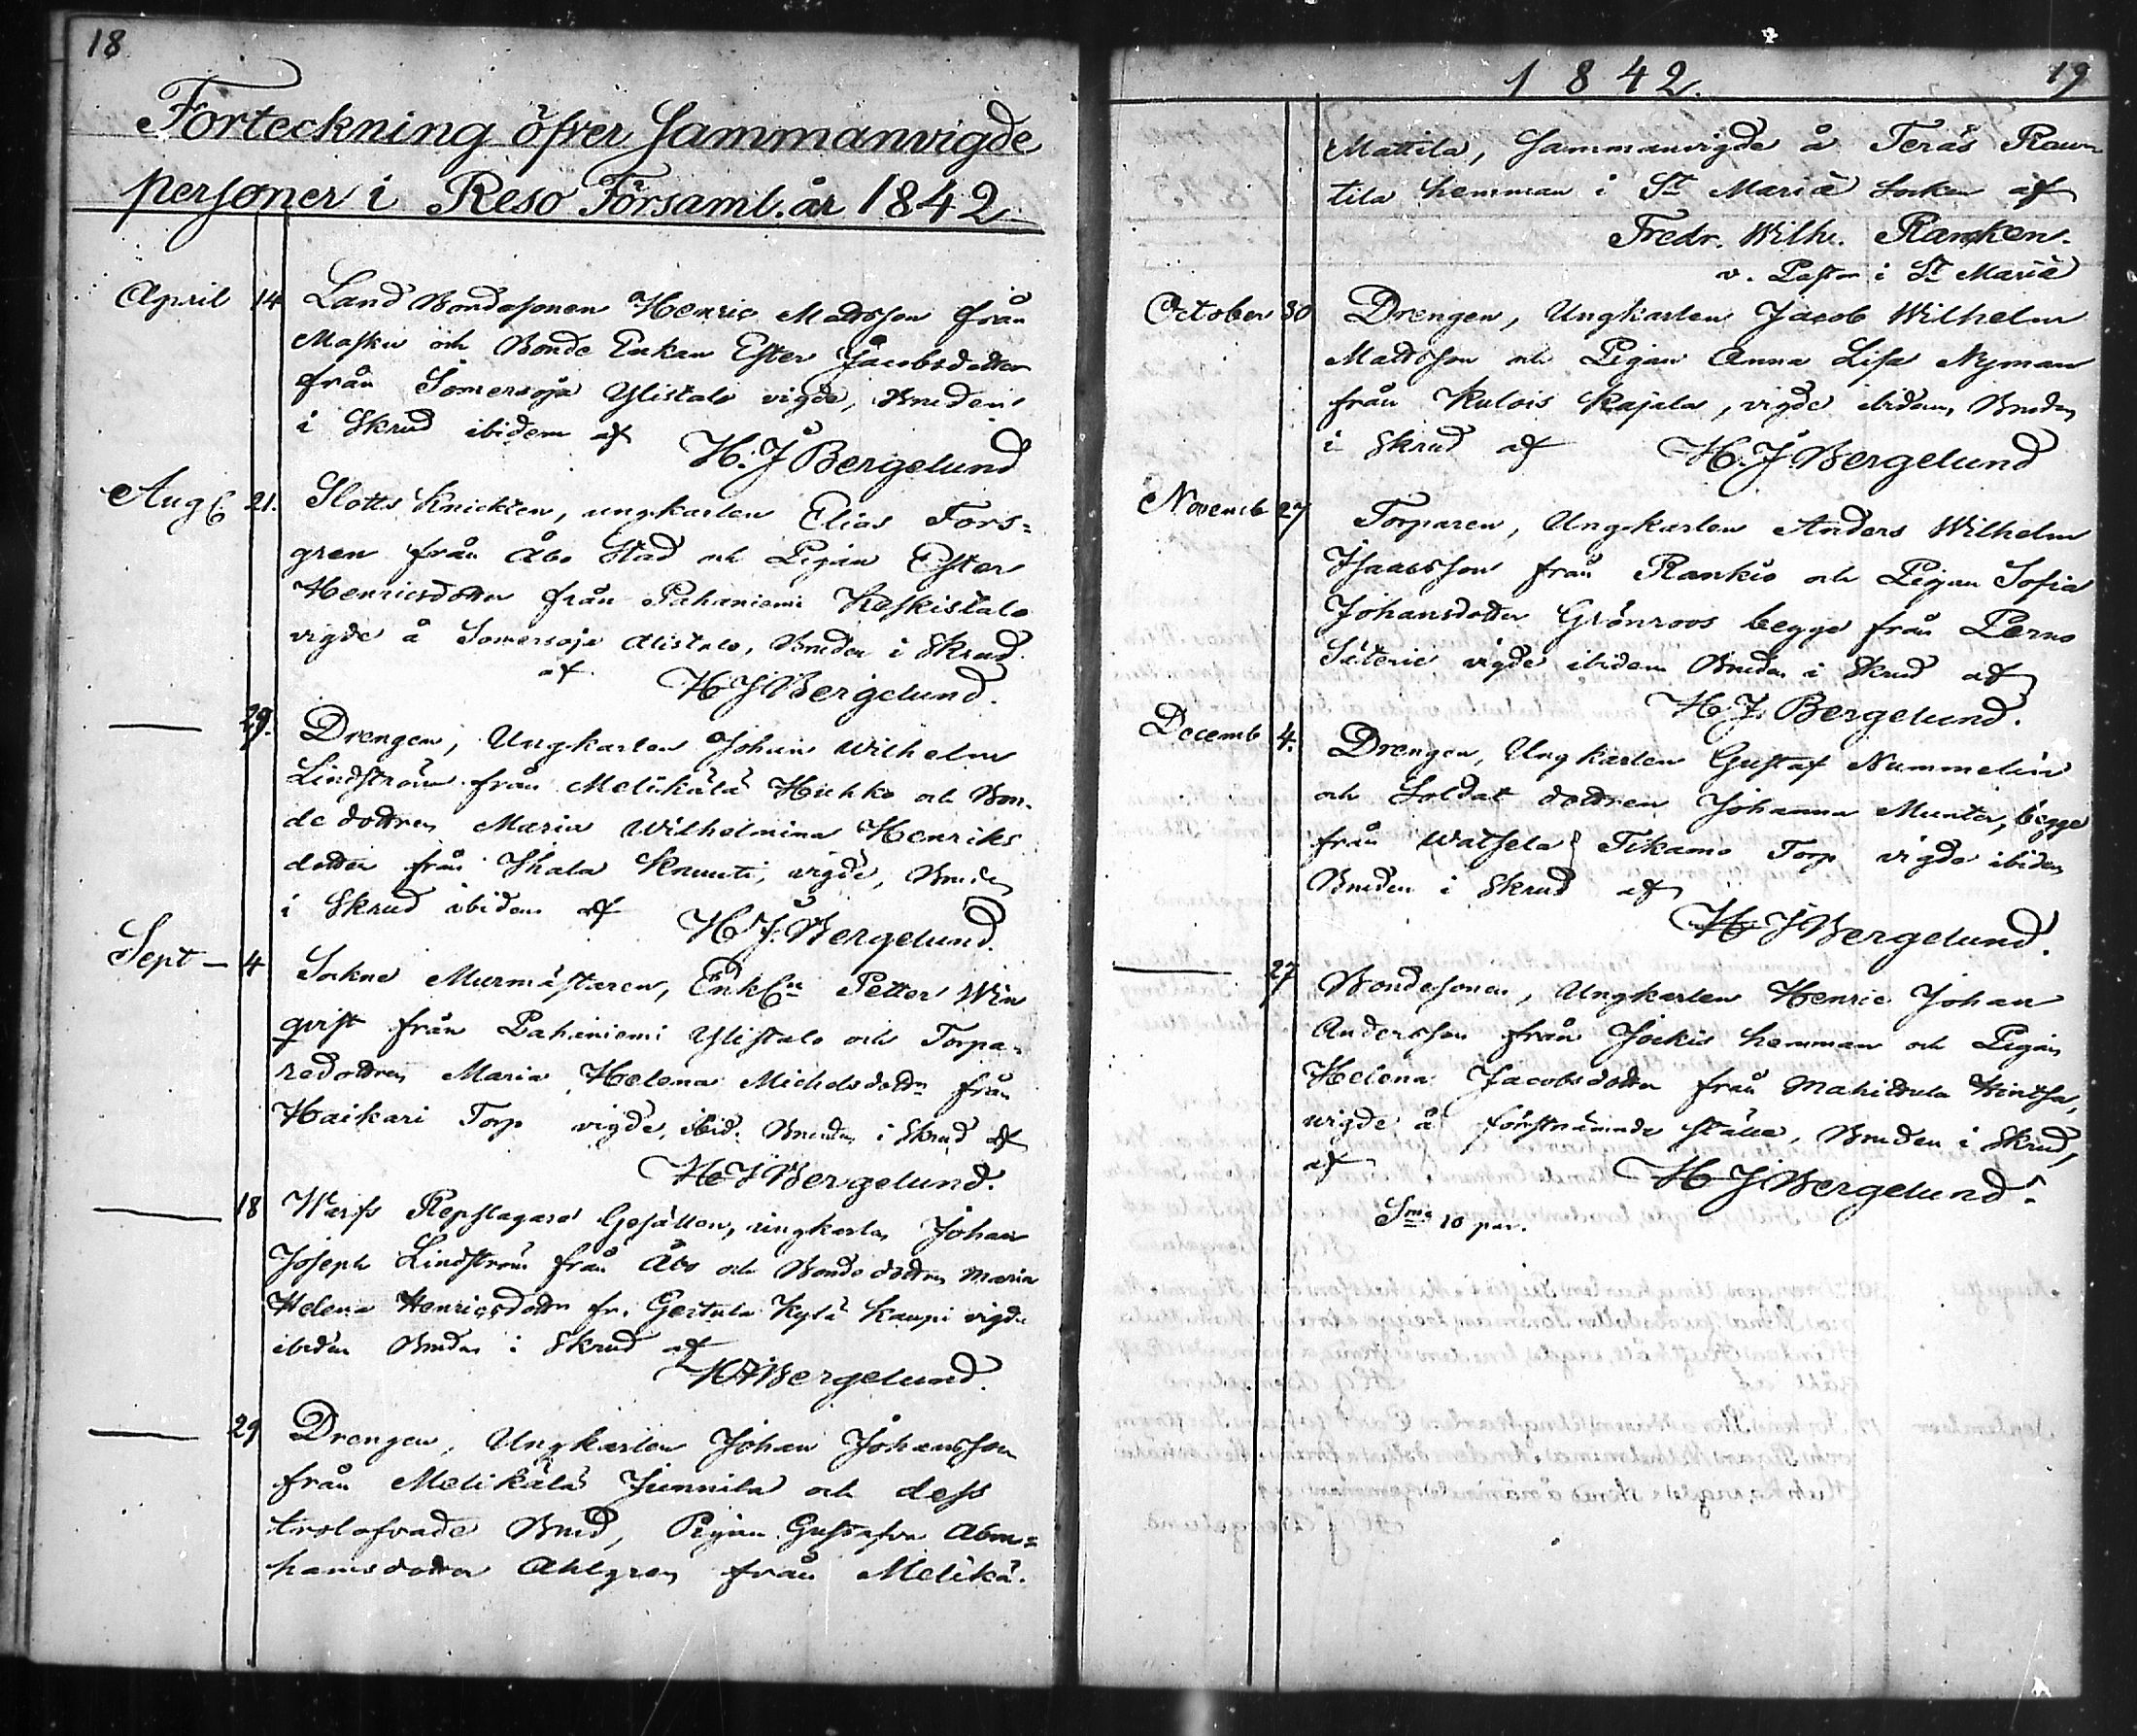 18
Forteckning öfver Sammanvigde
personer i Reso Församl. år 1842
April 14 Land Bondesonen Henric Mattsson från
Masku och Bonde Enkan Ester Jacobsdotter
från Somersoja Ylistalo vigde, Bruden
i Skrud ibidem af H. J Bergelund
Aug. 21. Slotts Knickten, ungkarlen Elias Fors=
gren från Åbo Stad och Pigan Ester
Henricsdotter från Pahaniemi Keskistalo
vigde å Somersoja Alistalo, Bruden i Skrud
af H J Bergelund.
29. Drengen, Ungkarlen Johan Wilhelm
Lindström från Melikälä Huhko och Bon-
de dottren Maria Wilhelmina Henriks
dotter från Ihala Knuuti, vigde, Bruden
i Skrud ibidem af H J. Bergelund.
Sept - 4 Sokne Murmästaren, Petter Win
qvist från Pahaniemi Ylistalo och Torpa-
redottren Maria Helena Michelsdottr från
Haikari Torp vigde, ibid. Bruden i Skrud af
H J Bergelund.
18 Warfs Repslagare Gesällen, ungkarlen Johan
Joseph Lindström från Åbo och Bonde dottren Maria
Helena Henricsdottr fr. Gertula Kylä Kaupi vigde
ibidem Bruden i Skrud af
H J Bergelund.
29 Drengen, Ungkarlen Johan Johansson
från Melikälä Junnila och dess
trolofvade Brud, Pigan Gustafva Abra=
hamsdotter Ahlgren från Melikä-
1842.
19
Mattila, Sammanvigde å Teräs Raun
tila hemman i St Mariæ Socken af
Fredr. Wilh. Rancken.
v. Pastor i St Mariæ
October 30 Drengen, Ungkarlen Jacob Wilhelm
Mattsson och Pigan Anna Lisa Nyman
från Kulois Kajala, vigde ibidem, Bruden
i Skrud af H. J. Bergelund
Novemb 27 Torparen, Ungkarlen Anders Wilhelm
Isaacsson från Rankio och Pigan Sofia
Johansdotter Grönroos begge från Perno
Säterie vigde ibidem Bruden i Skrud af
H. J. Bergelund.
Decemb 4. Drengen, Ungkarlen Gustaf Nummelin
och Soldat dottren Johanna Munter, begge
från Watsela Tikamo Torp vigde ibidem
Bruden i Skrud af
H J Bergelund.
27 Bondesonen, Ungkarlen Henric Johan
Andersson från Jockis hemman och Pigan
Helena Jacobsdotter från Mahittula Hintsa,
vigde å förstnämnde ställe, Bruden i Skrud,
af H J Bergelund.
Sma 10 par.